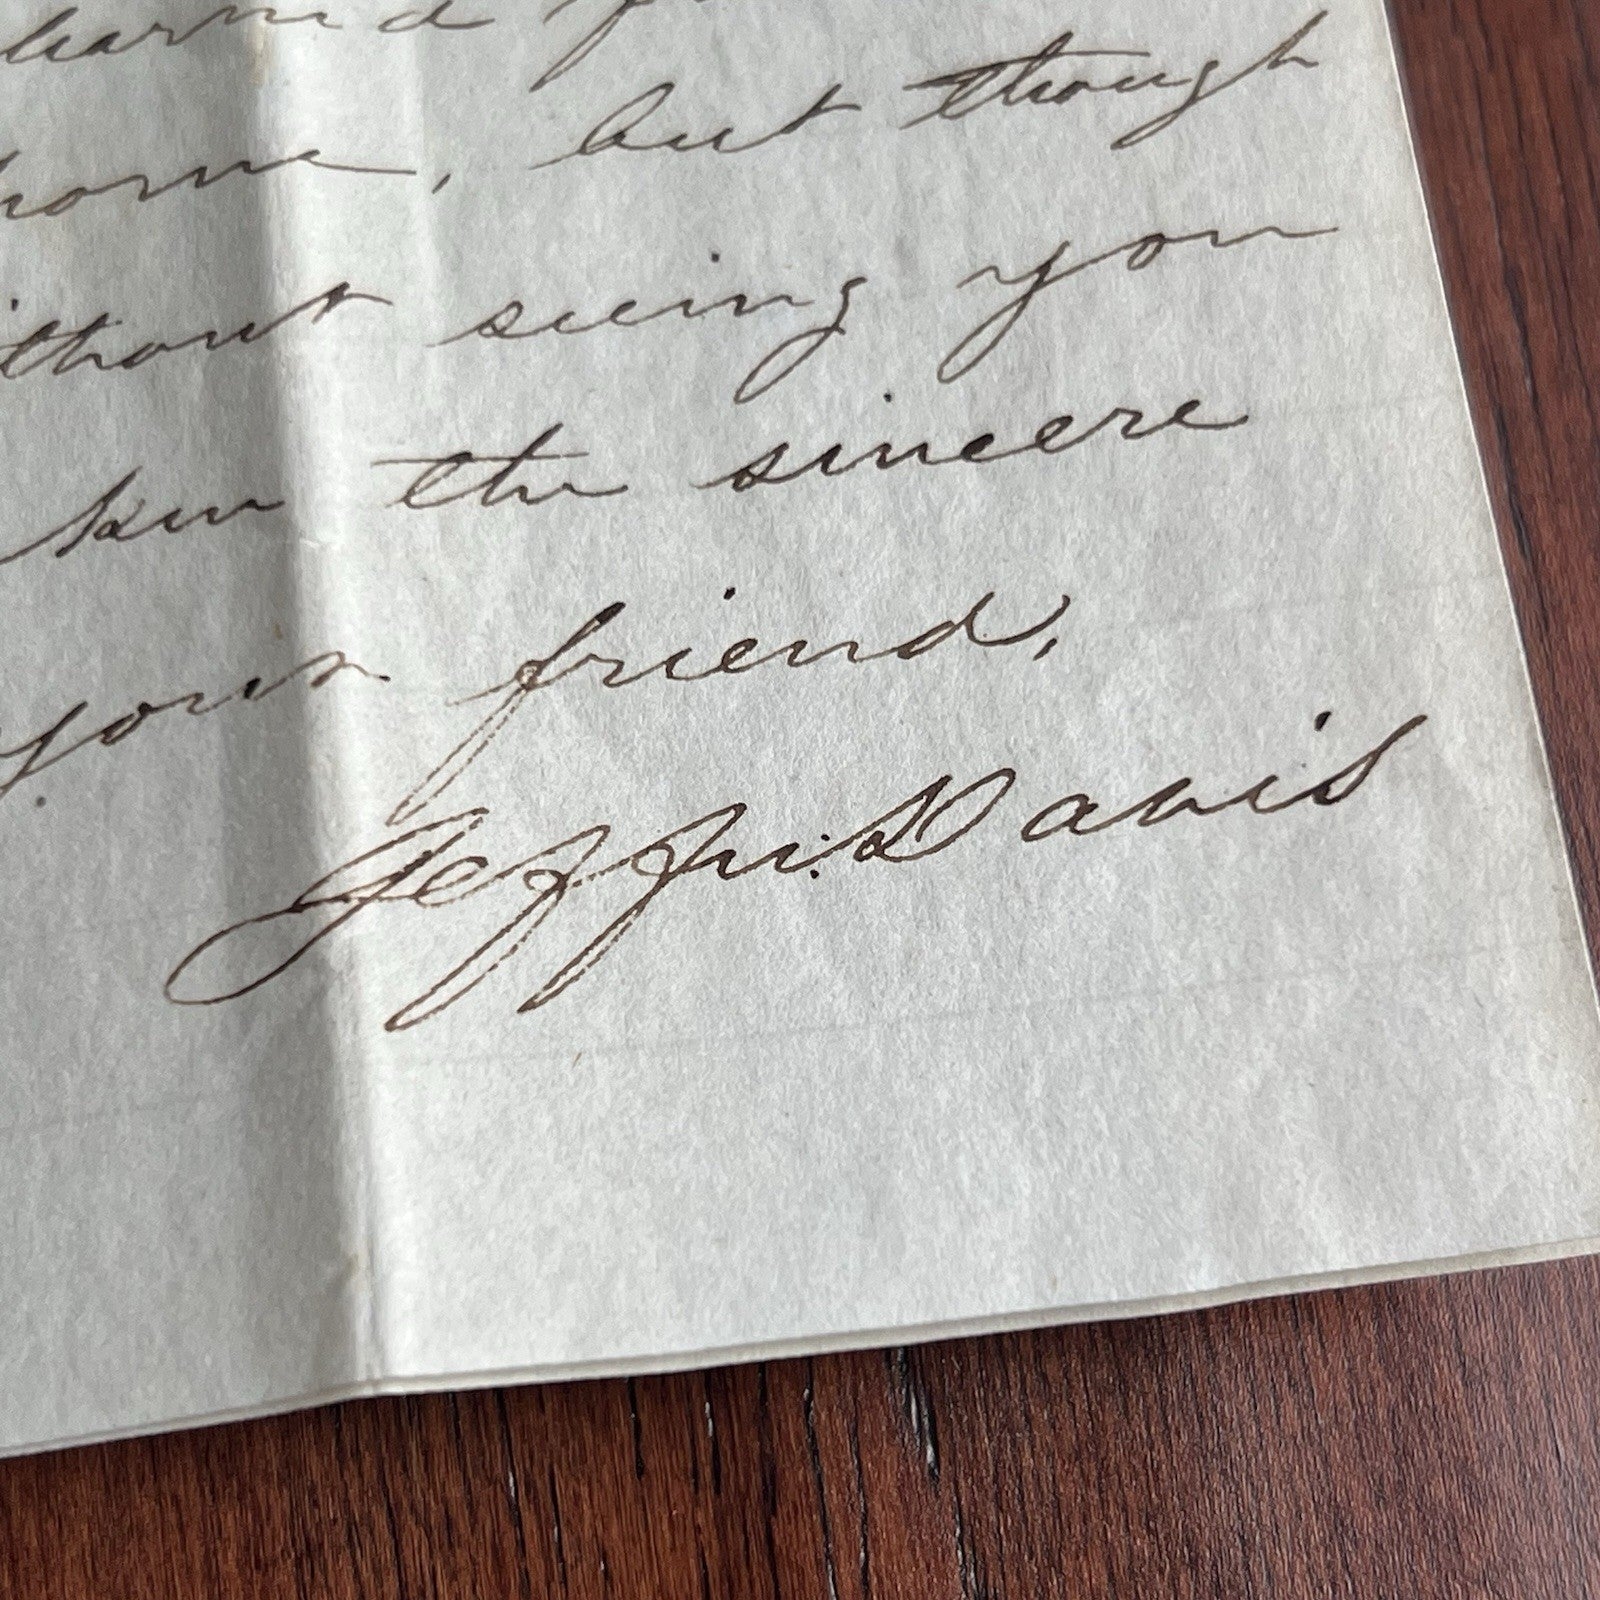 learned
home, but though
ithout seeing you
the sincere
your friend,
Jeffn: Davis